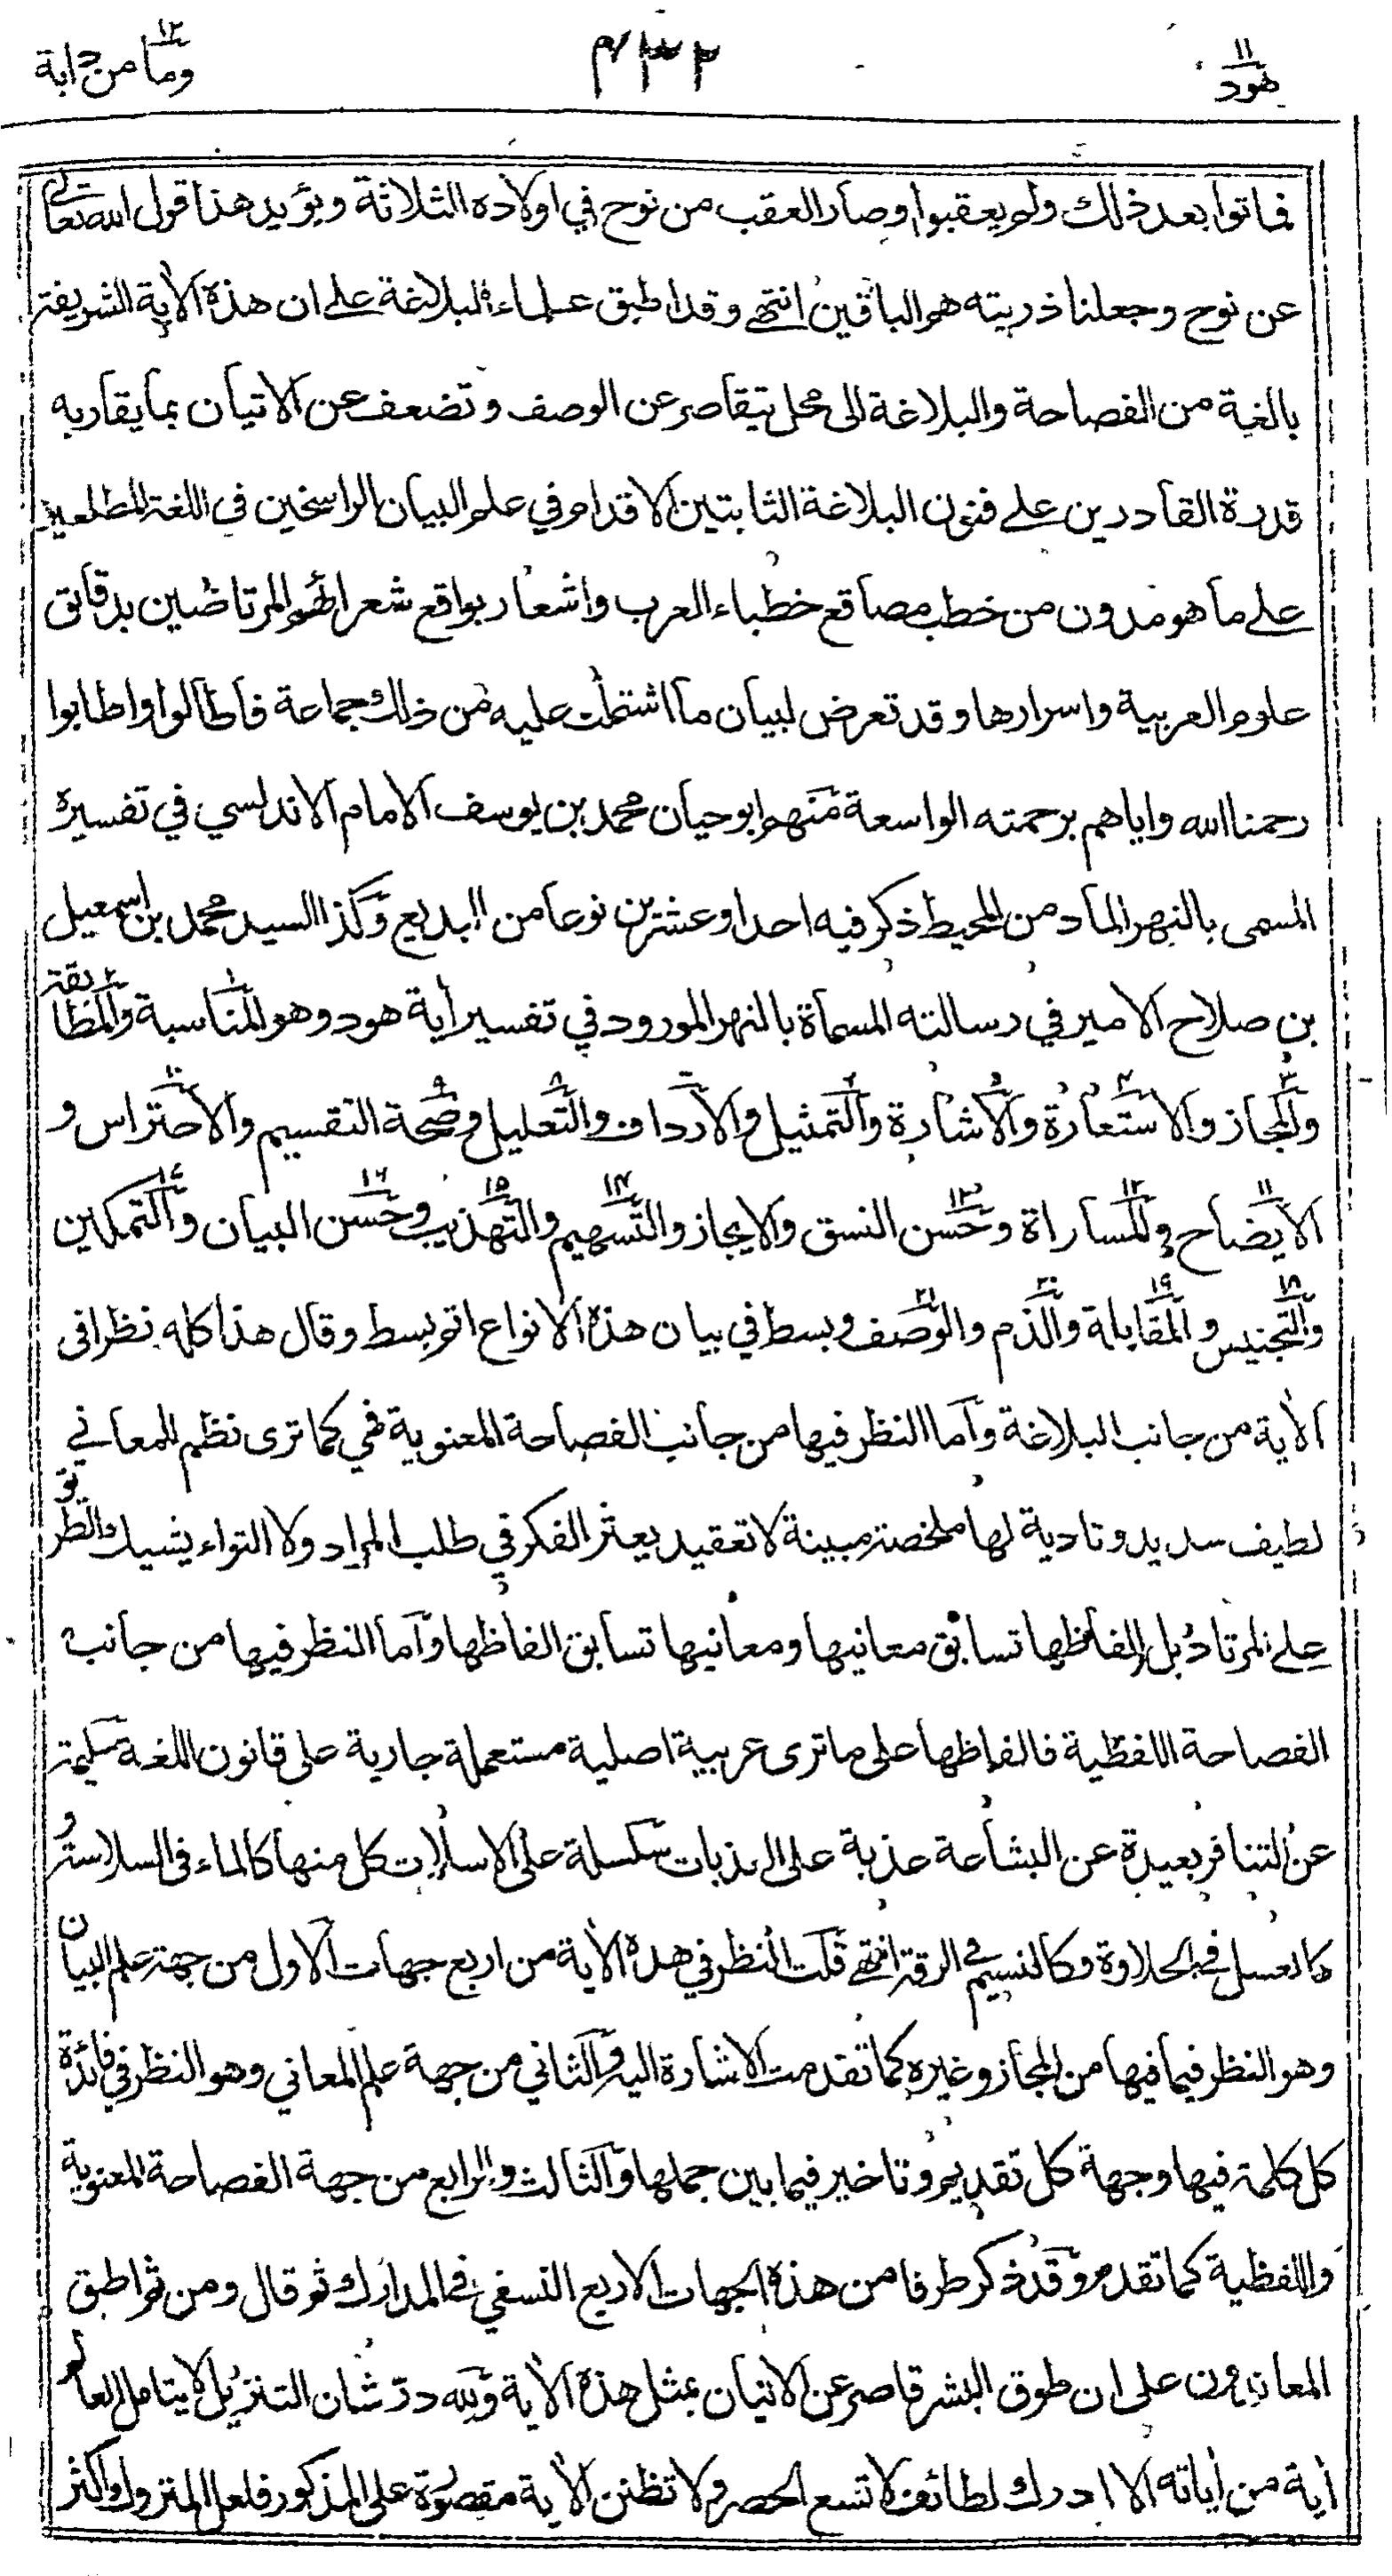 هود ١١
٤٣٢
وما من دابة ١٢
فماتوا بعد ذلك ولم يعقبوا وصار العقب من نوح في اولاده الثلاثة ويؤيد هذا قول الله تعالى
عن نوح وجعلنا ذريته هم الباقين انتهى وقد اطبق علماء البلاغة على ان هذه الآية الشريفة
بالغة من الفصاحة والبلاغة الى محل يتقاصر عن الوصف وتضعف عن الاتيان بما يقاربه
قدرة القادرين على فنون البلاغة الثابتين الاقدام في علم البيان الراسخين في اللغة المطلعين
على ما هو مدون من خطب مصاقع خطباء العرب واشعار بواقع شعرائهم المرتاضين بدقائق
علوم العربية واسرارها وقد تعرض لبيان ما اشتملت عليه من ذلك جماعة فاطالوا واطابوا
رحمنا الله واياهم برحمته الواسعة منهم ابو حيان محمد بن يوسف الامام الاندلسي في تفسيره
المسمى بالنهر الماد من المحيط ذكر فيه احدا وعشرين نوعا من البديع وكذا السيد محمد بن اسمعيل
بن صلاح الامير في رسالته المسماة بالنهر المورود في تفسير أية هود وهو المناسبة ١ والمطابقة ٢
والمجاز ٣ والاستعارة ٤ والاشارة ٥ والتمثيل ٦ والارداف ٧ والتعليل ٨ وصحة ٩ التقسيم والاحتراس ١٠ و
الايضاح ١١ والمساراة ١٢ وحسن ١٣ النسق والايجاز والتسهيم ١٤ والتهذيب ١٥ وحسن ١٦ البيان والتمكين ١٧
والتجنيس ١٨ والمقابلة ١٩ والذم ٢٠ والوصف ٢١ وبسط في بيان هذه الانواع اتم بسط وقال هذا كله نظرا في
الأية من جانب البلاغة واما النظر فيها من جانب الفصاحة المعنوية فهي كما ترى نظم للمعاني
لطيف سديد وتادية لها ملخصة مبينة لا تعقيد يعثر الفكر في طلب المراد ولا التواء يشيك الطريق
على المرتاد بل الفاظها تسابق معانيها ومعانيها تسابق الفاظها واما النظر فيها من جانب
الفصاحة اللفظية فالفاظها على ما ترى عربية اصلية مستعملة جارية على قانون اللغة سليمة
عن التنافر بعيدة عن البشاعة عذبة على العذبات سلسلة على الاسلات كل منها كالماء في السلاسة و
كالعسل في الحلاوة وكالنسيم في الرقة انتهى قلت النظر في هذه الأية من اربع جهات الاول من جهة علم البيان
وهو النظر فيما فيها من المجاز وغيره كما تقدمت الاشارة اليه والثاني من جهة علم المعاني وهو النظر في فائدة
كل كلمة فيها وجهة كل تقديم وتاخير فيما بين جملها والثالث والرابع من جهة الفصاحة المعنوية
واللفظية كما تقدم وقد ذكر طرفا من هذه الجهات الاربع النسفي في المدارك ثم قال ومن ثم اطبق
المعاندون على ان طوق البشر قاصر عن الاتيان بمثل هذه الأية ولله در شان التنزيل لا يتامل العالم
أية من أياته الا ادرك لطائف لا تسع الحصر ولا تظنن الأية مقصورة على المذكور فلعل المتروك اكثر